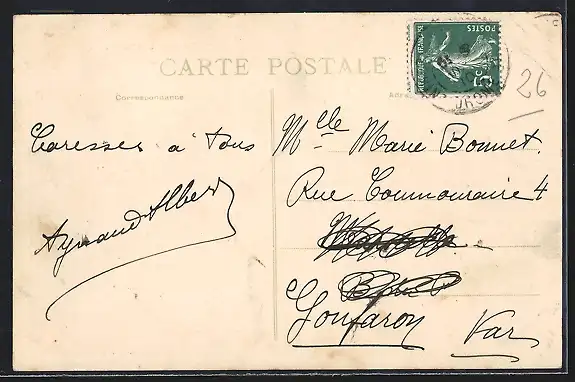 CARTE POSTALE
Correspondance
REPUBLIQUE FRANÇAISE
POSTES
5c
26
Caresses à Tous
Aymand Albert
Mlle Marie Bonnet.
Rue 4
Gonfaron
Var